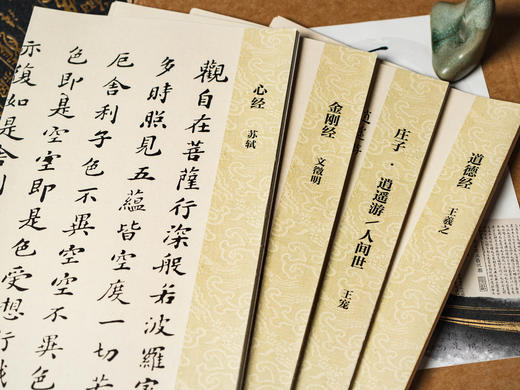 觀自在菩薩行深般若波羅
多時照見五蘊皆空度一切
厄舍利子色不異空空不異色
色即是空空即是色受想行
亦復如是舍利
心经 苏轼
金刚经 文徵明
庄子·逍遥游/人间世 王宠
道德经 王羲之